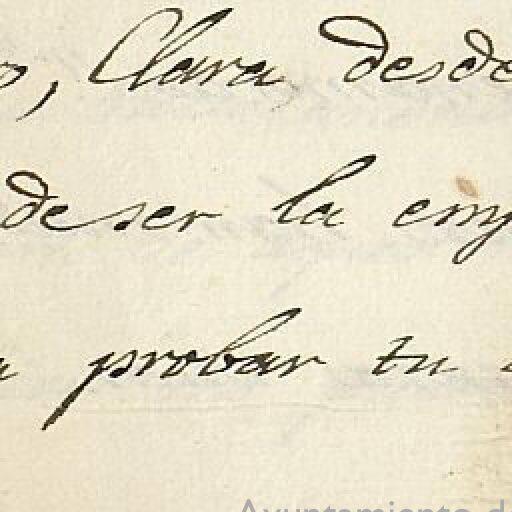 o, Clara, desde
de ser la emp
a probar tu
Ayuntamiento d